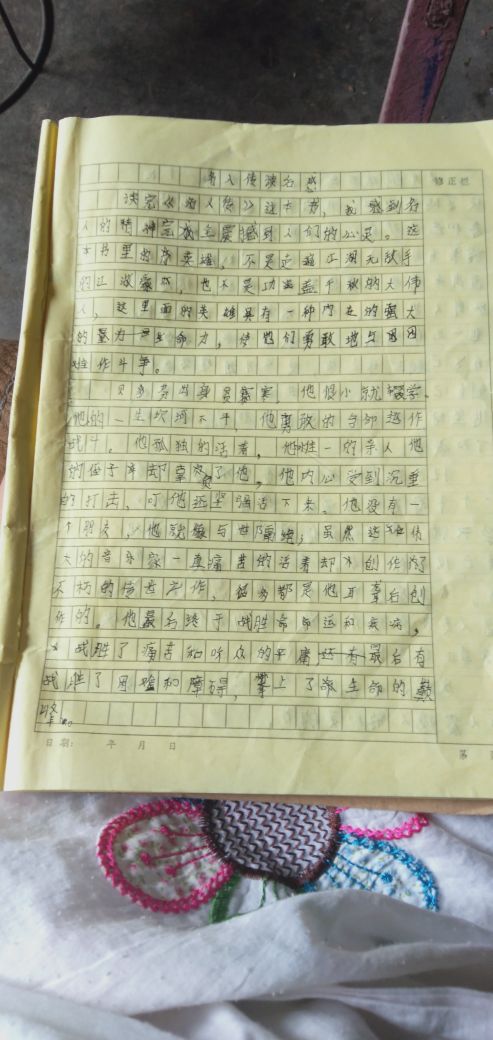 名人传读后感
修正栏
读完《名人传》这本书,我感到名
人的精神 震撼到人们的心灵。这
本书里的 英雄,不是 江湖无敌手
的江湖 ,也不是功 盖千秋的大伟
人,这里面的英雄具有一种内在的强大
的 生命力,使他们勇敢地与困
难作斗争。
贝多芬 贫寒,他很小就辍学。
他的一生坎坷不平,他勇敢的与命运作
战斗。他孤独的活着,他唯一的亲人他
的侄子 却 了他,他内心受到沉重
的打击,可他还坚强活下来。他没有一
个朋友,他就像与世隔绝;虽然这 伟
大的音乐家一直痛苦的活着却 创作
不朽的传世 作, 都是他耳聋后创
作的。他最后终于战胜 命运和疾病,
战胜了痛苦和听众的平庸 最后
战胜了困难和障碍, 上了 生命的巅
峰。
日期: 年 月 日
第